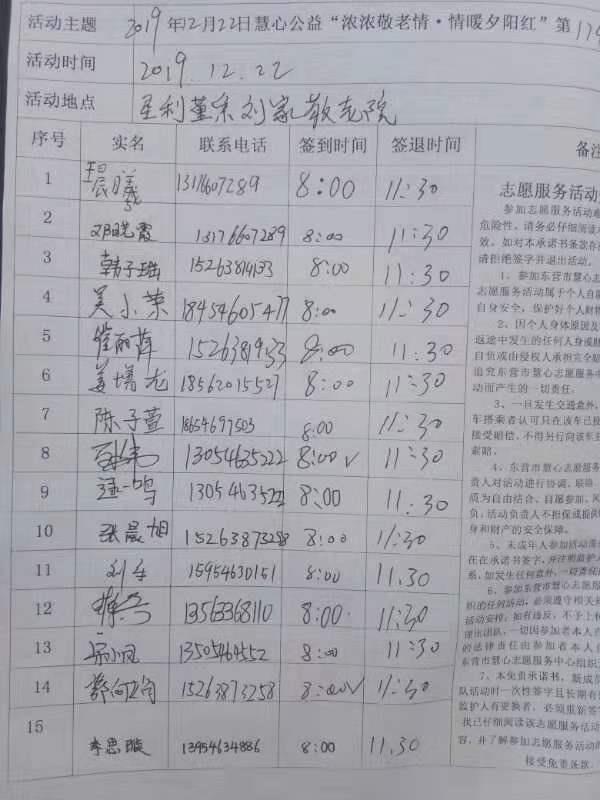 活动主题 2019年12月22日慧心公益“浓浓敬老情·情暖夕阳红”第179
活动时间 2019.12.22
活动地点 垦利董集刘家敬老院
序号 实名 联系电话 签到时间 签退时间 备注
1 晨曦 13176607289 8:00 11:30
2 邓晓霞 13176607289 8:00 11:30
3 韩子瑞 15263814133 8:00 11:30
4 吴小荣 18454605477 8:00 11:30
5 崔丽萍 15263819333 8:00 11:30
6 姜增龙 18562015527 8:00 11:30
7 陈子萱 18654697503 8:00 11:30
8 13054635222 8:00√ 11:30
9 一鸣 1305463522 8:00 11:30
10 张晨旭 15263873258 8:00 11:30
11 15954630151 8:00 11.30
12 13563368110 8:00 11:30
13 13505464552 8:00 11:30
14 郭向 15263873258 8:00√ 11:30
15 李思璇 13954634886 8:00 11.30
志愿服务活动
参加志愿服务活动
危险性，请务必仔细阅读
效。如对本承诺书条款存
请拒绝签字并退出活动。
1、参加东营市慧心志
志愿服务活动属于个人自愿
自身安全，保护好个人财物
2、因个人身体原因及
返途中发生的任何人身或财
自负或由侵权人承担完全赔
追究东营市慧心志愿服务中
动而产生的一切责任。
3、一旦发生交通意外，
车搭乘者认可只在该车已投
接受赔偿，不得另行向该车主
索赔。
4、东营市慧心志愿服务
责人对活动进行协调、联络
成为自由结合、自愿参加、风
负，活动负责人不担保或提供
身和财产的安全保障。
5、未成年人参加活动需
在在承诺书签字，并注明监护人
系，如发生任何意外，一切责任
6、参加东营市慧心志愿服
织的任何活动，必须遵守相关
活动安排；如有违反，不予上
理出团队，一切因参加者本人
的法律责任由参加者本人自
东营市慧心志愿服务中心组织
7、本免责承诺书，新成员
队活动时一次性签字且长期有
监护人有更换者，必须重新签字
我已仔细阅读该志愿服务活动
容，并了解参加志愿服务活动的
接受免责条款。